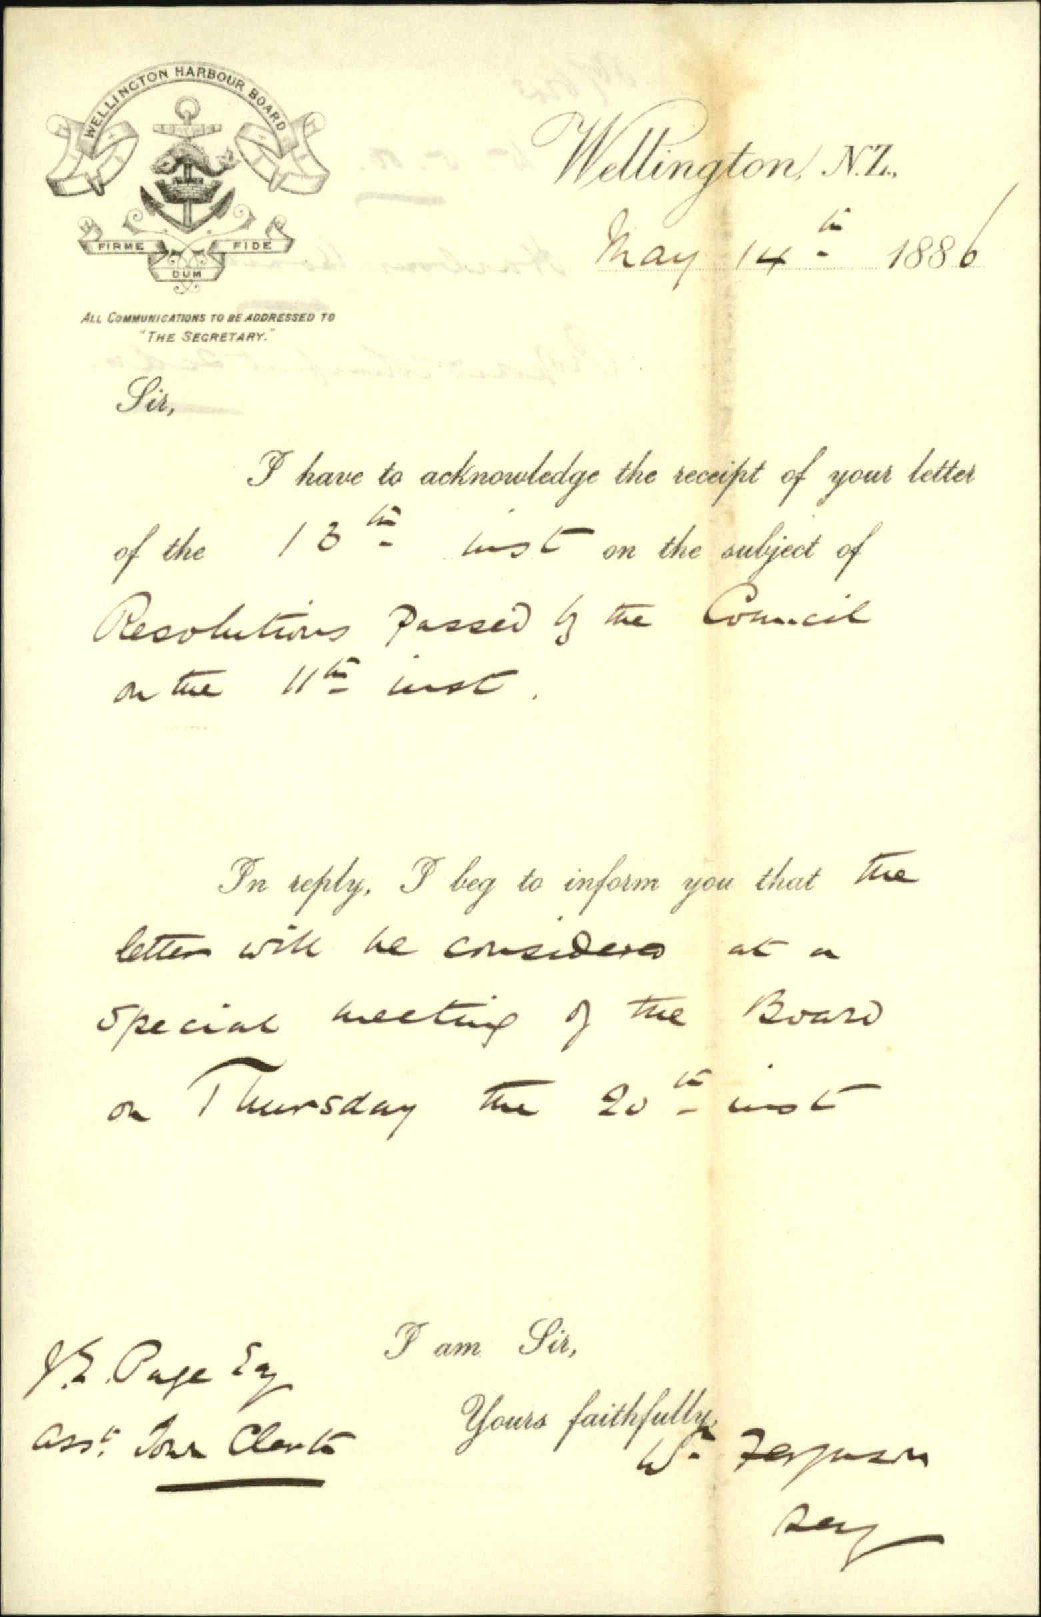 WELLINGTON HARBOUR BOARD
FIRME DUM FIDE
ALL COMMUNICATIONS TO BE ADDRESSED TO
"THE SECRETARY."
Wellington, N.Z.,
May 14th 1886
Sir,
I have to acknowledge the receipt of your letter
of the 13th inst on the subject of
Resolutions passed by the Council
on the 11th inst.
In reply, I beg to inform you that the
letter will be considered at a
special meeting of the Board
on Thursday the 20th inst
I am Sir,
Yours faithfully,
Wm Ferguson
Secy
J.E. Page Esq
Asst. Town Clerk